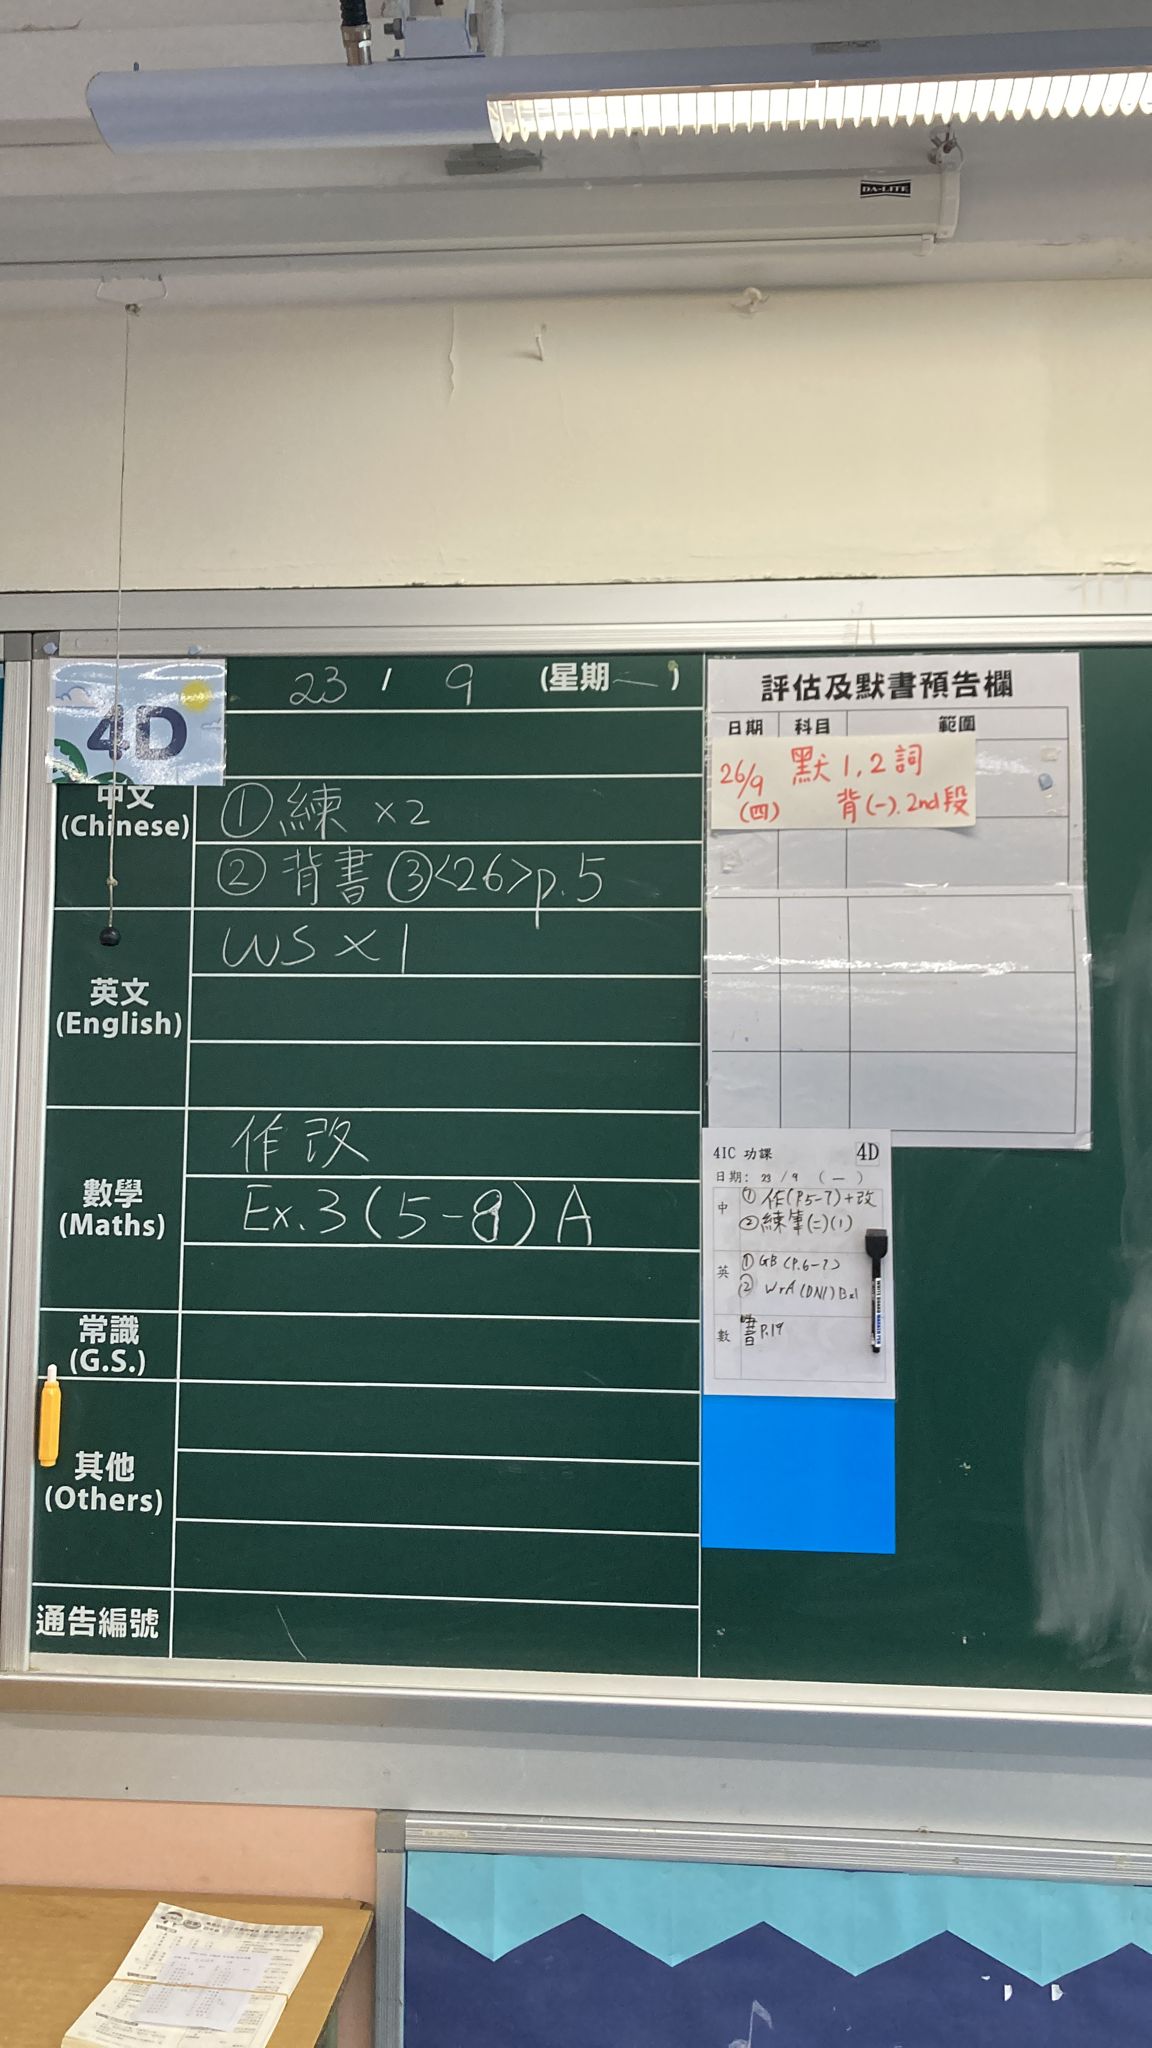 DA-LITE
4D
23 / 9 (星期一)
中文
(Chinese)
① 練 ×2
② 背書 ③<26>p.5
英文
(English)
WS ×1
數學
(Maths)
作改
Ex.3 (5-8) A
常識
(G.S.)
其他
(Others)
通告編號
評估及默書預告欄
日期 科目 範圍
26/9 默 1, 2 詞
(四) 背(一). 2nd 段
4IC 功課 4D
日期: 23 / 9 (一)
中 ① 作(P.5-7)+改
② 練筆(二)(1)
英 ① GB (P.6-7)
數 書 P.19